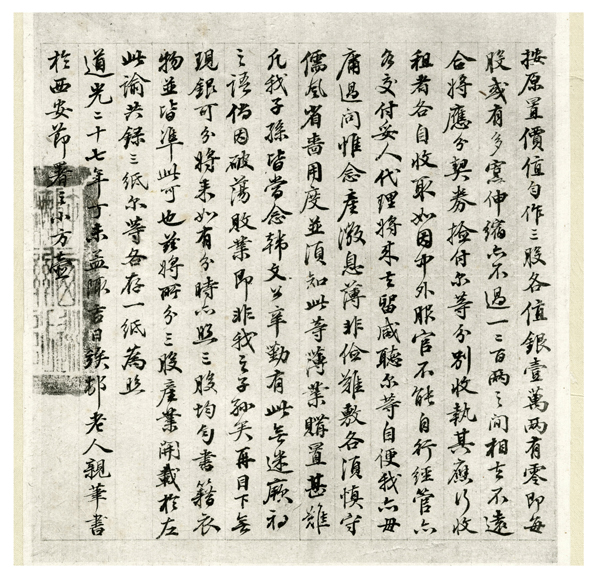 按原置價值勻作三股各值銀壹萬兩有零即每
股或有多寡伸縮亦不過一二百兩之間相去不遠
合將應分契券撿付尔等分別收執其應行收
租者各自收取如因中外服官不能自行經管亦
各交付妥人代理將來去留咸聽尔等自便我亦毋
庸過問惟念產微息薄非儉難敷各須慎守
儒風省嗇用度並須知此等薄業購置甚難
凡我子孫皆當念韓文公辛勤有此無迷厥初
之語倘因破蕩敗業即非我之子孫矣再目下無
現銀可分將來如有分時亦照三股均勻書籍衣
物並皆準此可也茲將所分三股產業開載於左
此諭共錄三紙尔等各存一紙為照
道光二十七年丁未孟陬吉日竢邨老人親筆書
於西安節署之小方壺